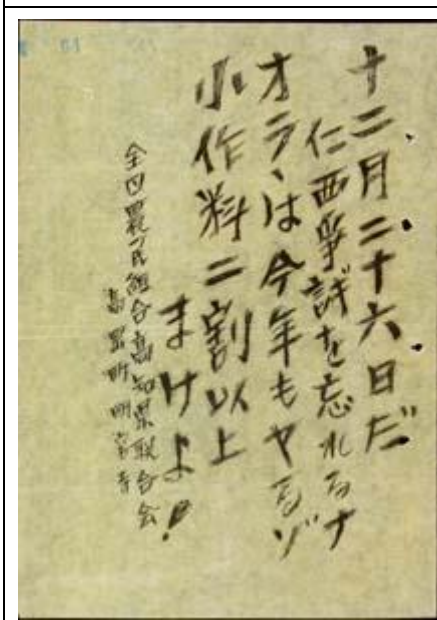 十二月二十六日だ
仁西爭議を忘れるナ
オラヽは今年もヤるゾ
小作料二割以上
まけよ!
全国農民組合高知県聯合会